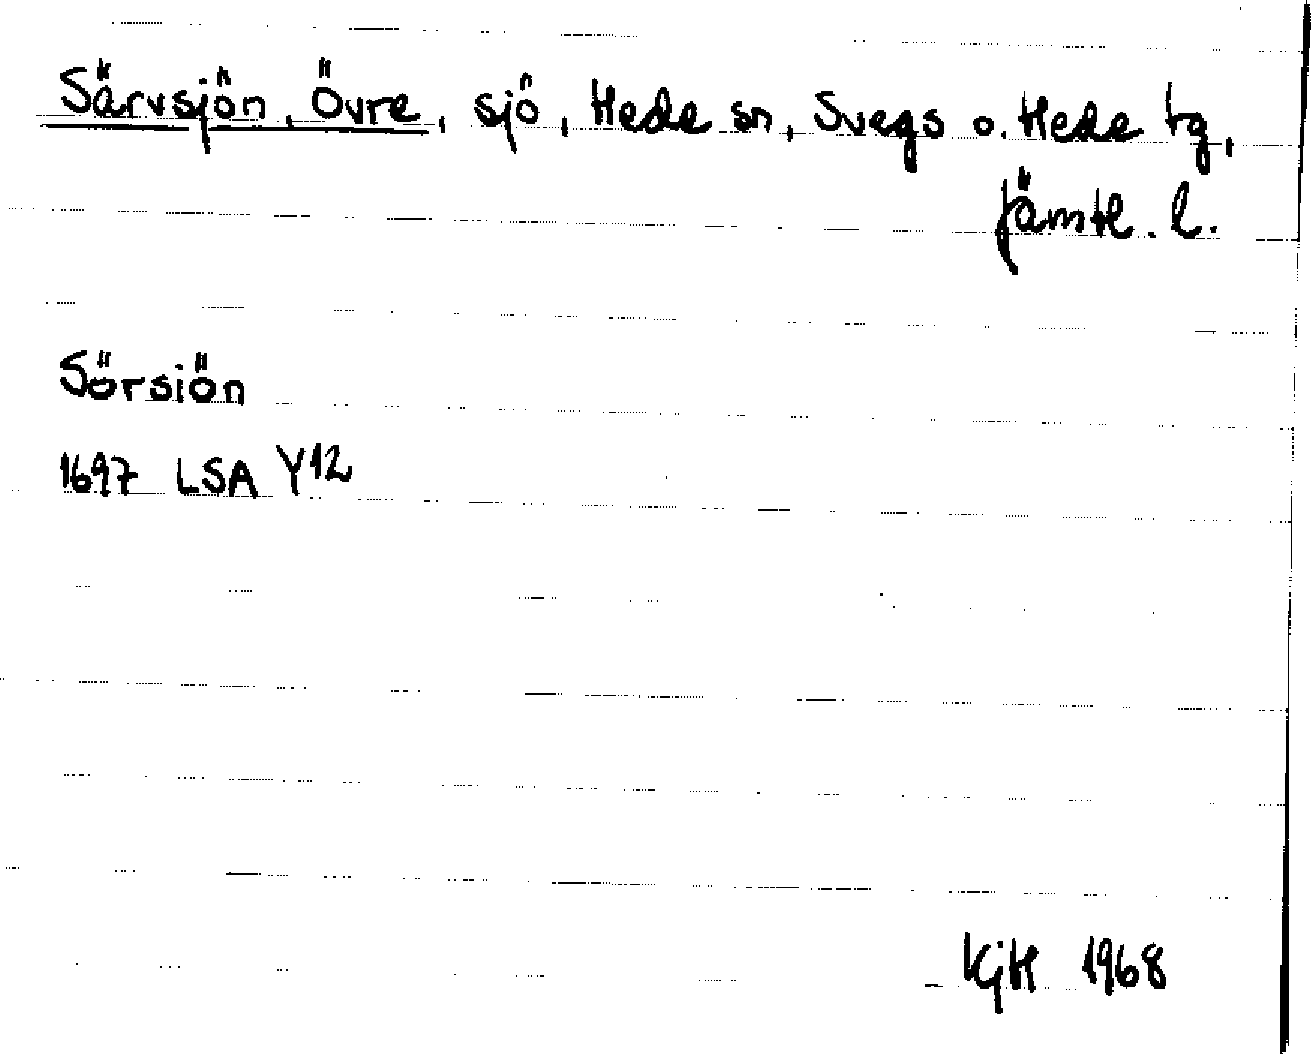 Särvsjön, Övre, sjö, Hede sn, Svegs o. Hede tg,
Jämtl. l.
Sörsiön
1697 LSA Y12
KjH 1968